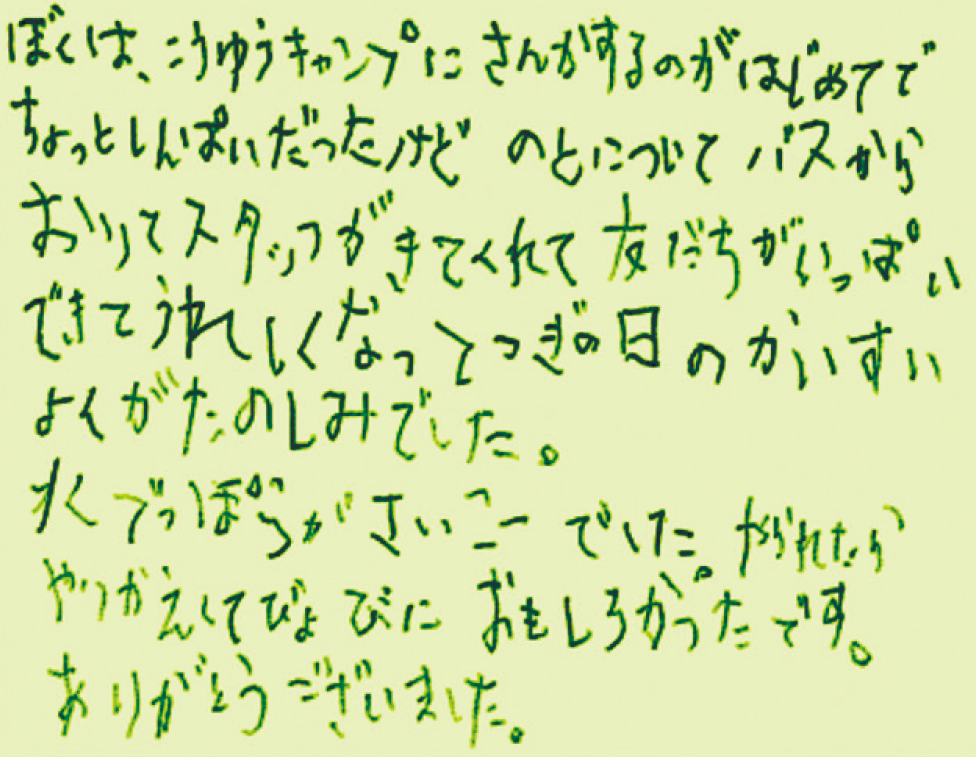 ぼくは、こうゆうキャンプにさんがするのがはじめてで
ちょっとしんぱいだったけど のとについてバスから
おりてスタッフがきてくれて友だちがいっぱい
できてうれしくなってつぎの日のかいすい
よくがたのしみでした。
水でっぽうがさいこーでした。やられたら
やりかえしてびょびに おもしろかったです。
ありがとうございました。